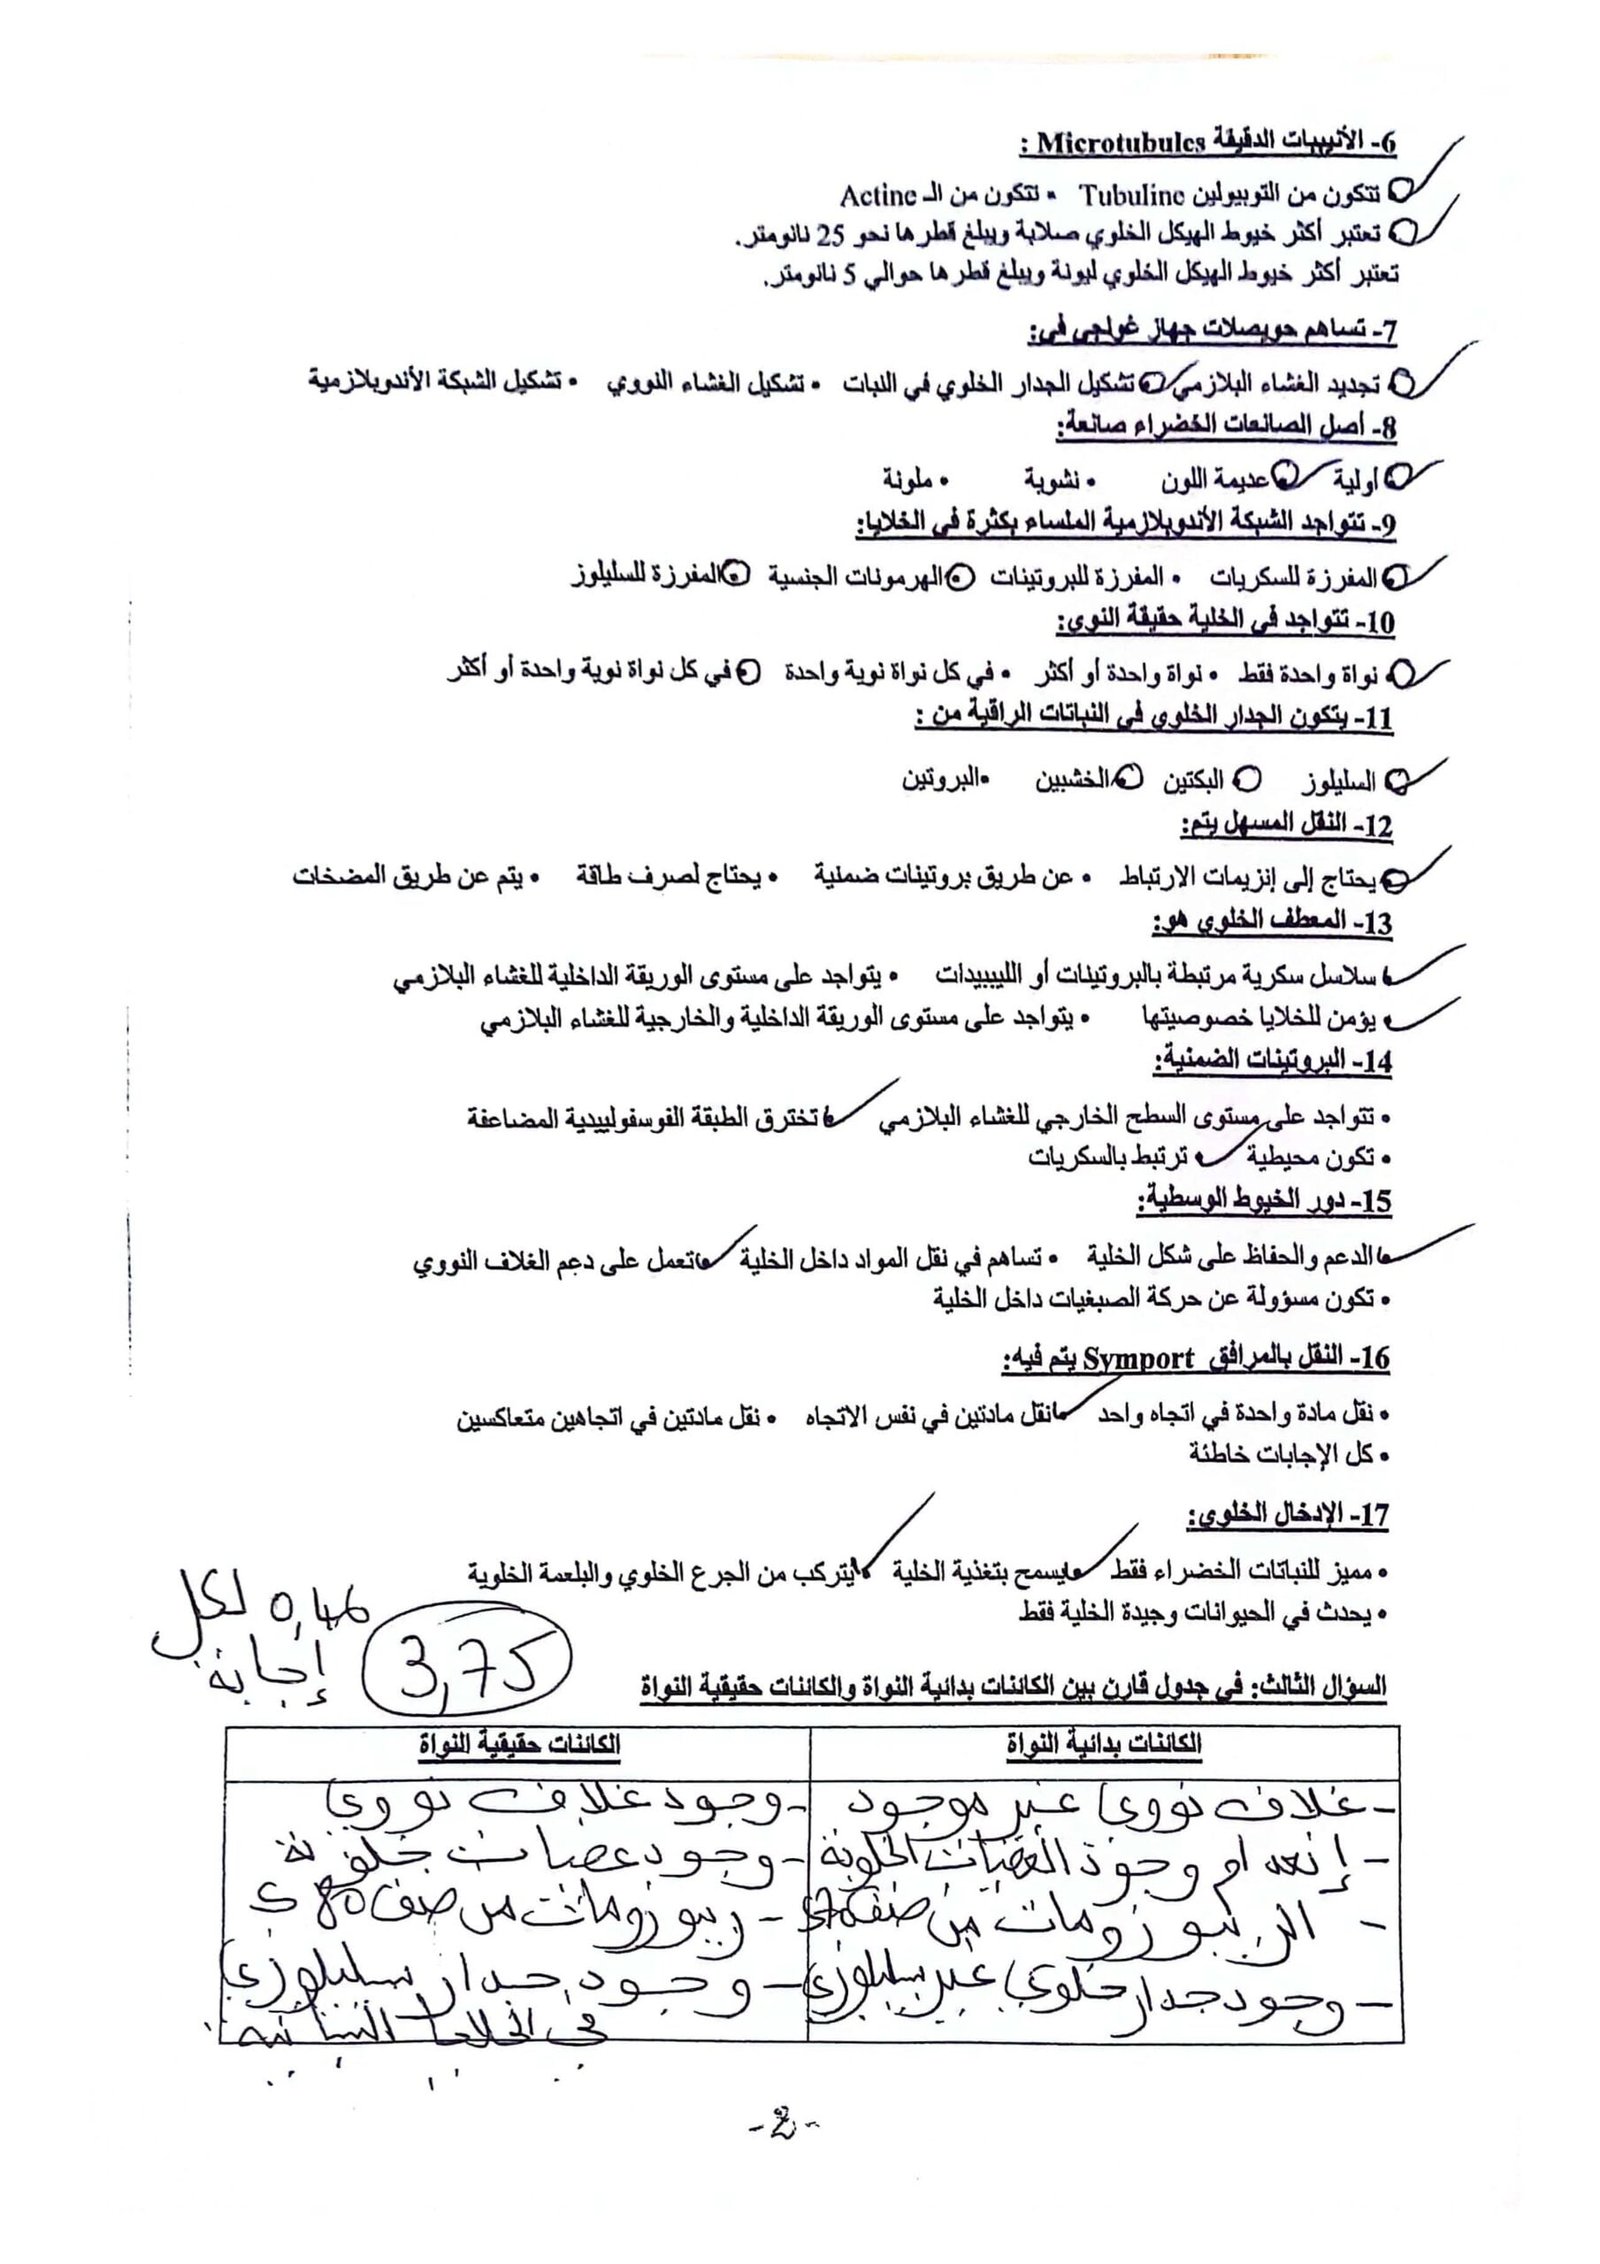 6- الأنيبيبات الدقيقة Microtubules :
• تتكون من التوبيولين Tubuline • تتكون من الـ Actine
• تعتبر أكثر خيوط الهيكل الخلوي صلابة ويبلغ قطرها نحو 25 نانومتر.
تعتبر أكثر خيوط الهيكل الخلوي ليونة ويبلغ قطرها حوالي 5 نانومتر.
7- تساهم حويصلات جهاز غولجي في:
• تجديد الغشاء البلازمي • تشكيل الجدار الخلوي في النبات • تشكيل الغشاء النووي • تشكيل الشبكة الأندوبلازمية
8- أصل الصانعات الخضراء صانعة:
• أولية • عديمة اللون • نشوية • ملونة
9- تتواجد الشبكة الأندوبلازمية الملساء بكثرة في الخلايا:
• المفرزة للسكريات • المفرزة للبروتينات • الهرمونات الجنسية • المفرزة للسليلوز
10- تتواجد في الخلية حقيقة النوى:
• نواة واحدة فقط • نواة واحدة أو أكثر • في كل نواة نوية واحدة • في كل نواة نوية واحدة أو أكثر
11- يتكون الجدار الخلوي في النباتات الراقية من :
• السليلوز • البكتين • الخشبين • البروتين
12- النقل المسهل يتم:
• يحتاج إلى إنزيمات الارتباط • عن طريق بروتينات ضمنية • يحتاج لصرف طاقة • يتم عن طريق المضخات
13- المعطف الخلوي هو:
• سلاسل سكرية مرتبطة بالبروتينات أو الليبيدات • يتواجد على مستوى الوريقة الداخلية للغشاء البلازمي
• يؤمن للخلايا خصوصيتها • يتواجد على مستوى الوريقة الداخلية والخارجية للغشاء البلازمي
14- البروتينات الضمنية:
• تتواجد على مستوى السطح الخارجي للغشاء البلازمي • تخترق الطبقة الفوسفولبيدية المضاعفة
• تكون محيطية • ترتبط بالسكريات
15- دور الخيوط الوسطية:
• الدعم والحفاظ على شكل الخلية • تساهم في نقل المواد داخل الخلية • تعمل على دعم الغلاف النووي
• تكون مسؤولة عن حركة الصبغيات داخل الخلية
16- النقل بالمرافق Symport يتم فيه:
• نقل مادة واحدة في اتجاه واحد • نقل مادتين في نفس الاتجاه • نقل مادتين في اتجاهين متعاكسين
• كل الإجابات خاطئة
17- الإدخال الخلوي:
• مميز للنباتات الخضراء فقط • يسمح بتغذية الخلية • يتركب من الجرع الخلوي والبلعمة الخلوية
• يحدث في الحيوانات وحيدة الخلية فقط
0,46 لكل
إجابة
3,75
السؤال الثالث: في جدول قارن بين الكائنات بدائية النواة والكائنات حقيقية النواة
الكائنات بدائية النواة
- غلاف نووي غير موجود
- إنعدام وجود العضيات الخلوية
- الريبوزومات من صنف 70S
- وجود جدار خلوي غير سيليلوزي
الكائنات حقيقية النواة
- وجود غلاف نووي
- وجود عضيات خلوية
- ريبوزومات من صنف 80S
- وجود جدار سيليلوزي
في الخلايا النباتية
-2-